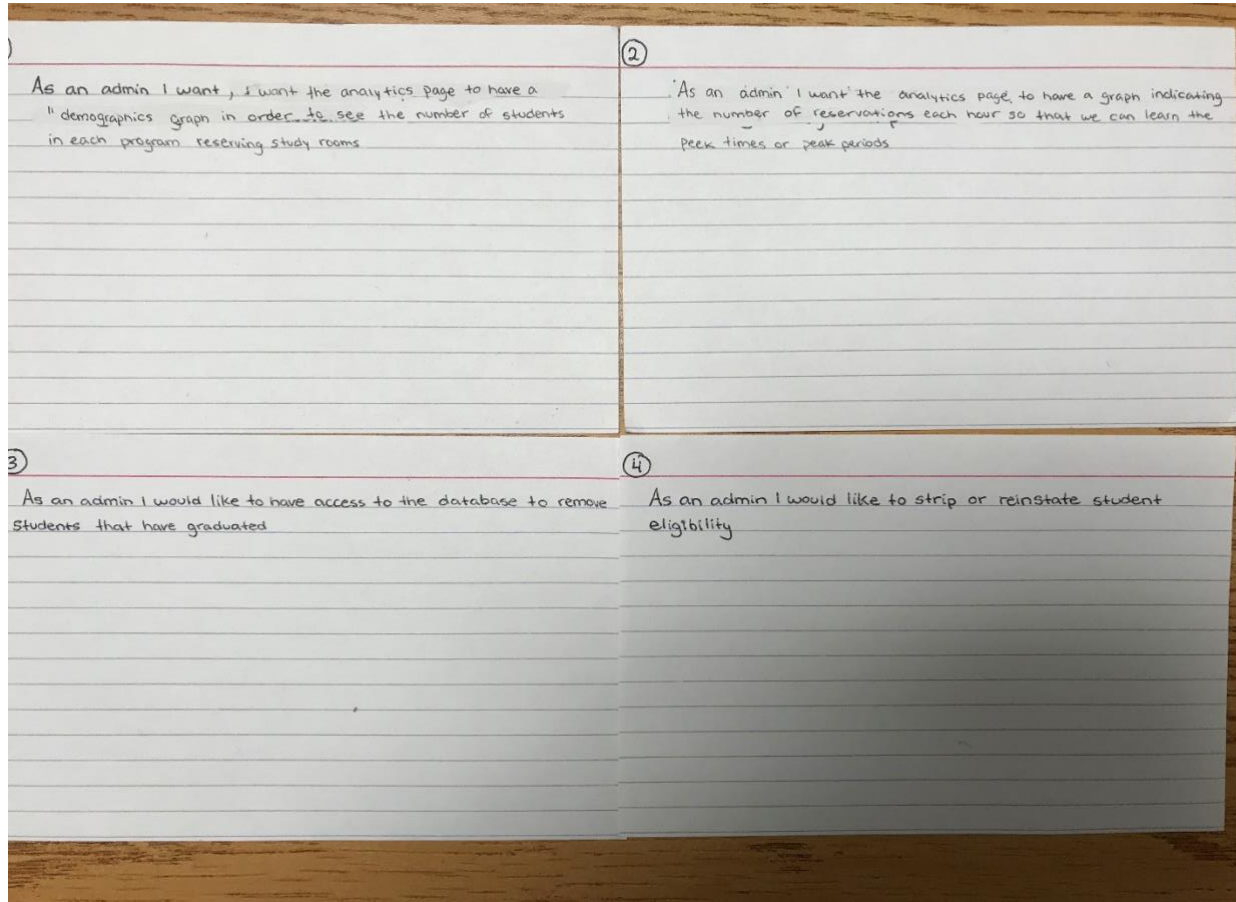 As an admin I want, I want the analytics page to have a
" demographics graph in order to see the number of students
in each program reserving study rooms
2
As an admin I want the analytics page, to have a graph indicating
the number of reservations each hour so that we can learn the
peek times or peak periods
3
As an admin I would like to have access to the database to remove
students that have graduated
4
As an admin I would like to strip or reinstate student
eligibility